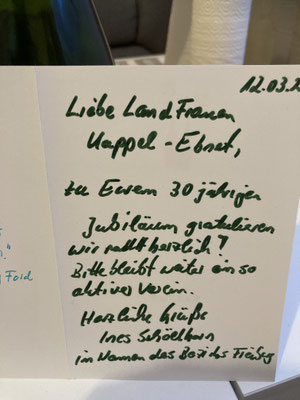 12.03.2
Liebe LandFrauen
Kappel-Ebnet,
zu Eurem 30 jährigen
Jubiläum gratulieren
wir recht herzlich!
Bitte bleibt weiter ein so
aktiver Verein.
Herzliche Grüße
Ines
im Namen des Bezirks Freiburg